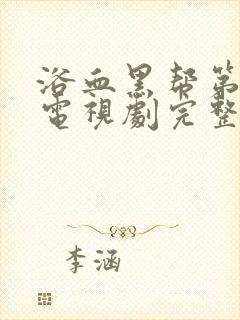 浴血黑帮第
電視劇完整
李涵